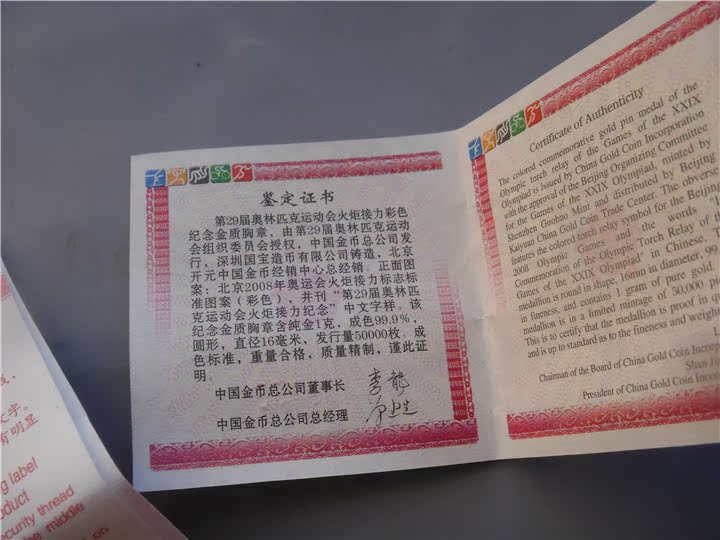 鉴定证书
第29届奥林匹克运动会火炬接力彩色
纪念金质胸章，由第29届奥林匹克运动
会组织委员会授权，中国金币总公司发
行，深圳国宝造币有限公司铸造，北京
开元中国金币经销中心总经销。正面图
案：北京2008年奥运会火炬接力标志标
准图案（彩色），并刊“第29届奥林匹
克运动会火炬接力纪念”中文字样。该
纪念金质胸章含纯金1克，成色99.9%，
圆形，直径16毫米，发行量50000枚。成
色标准，重量合格，质量精制，谨此证
明。
中国金币总公司董事长
中国金币总公司总经理
Certificate of Authenticity
The colored commemorative gold pin medal of the
Olympic torch relay of the Games of the XXIX
Olympiad is issued by China Gold Coin Incorporation
with the approval of the Beijing Organizing Committee
for the Games of the XXIX Olympiad, minted by
Shenzhen Guobao Mint and distributed by Beijing
Kaiyuan China Gold Coin Trade Center. The obverse
features the colored torch relay symbol for the Beijing
2008 Olympic Games and the words "
Commemoration of the Olympic Torch Relay of
Games of the XXIX Olympiad" in Chinese. T
medallion is round in shape, 16mm in diameter, 99
in fineness, and contains 1 gram of pure gold.
medallion is in a limited mintage of 50,000 p
This is to certify that the medallion is proof in
and is up to standard as to the fineness and weigh
Chairman of the Board of China Gold Coin Incorp
President of China Gold Coin Incor
文字。
有明显
ng label
oduct
ecurity thread
the middle
on